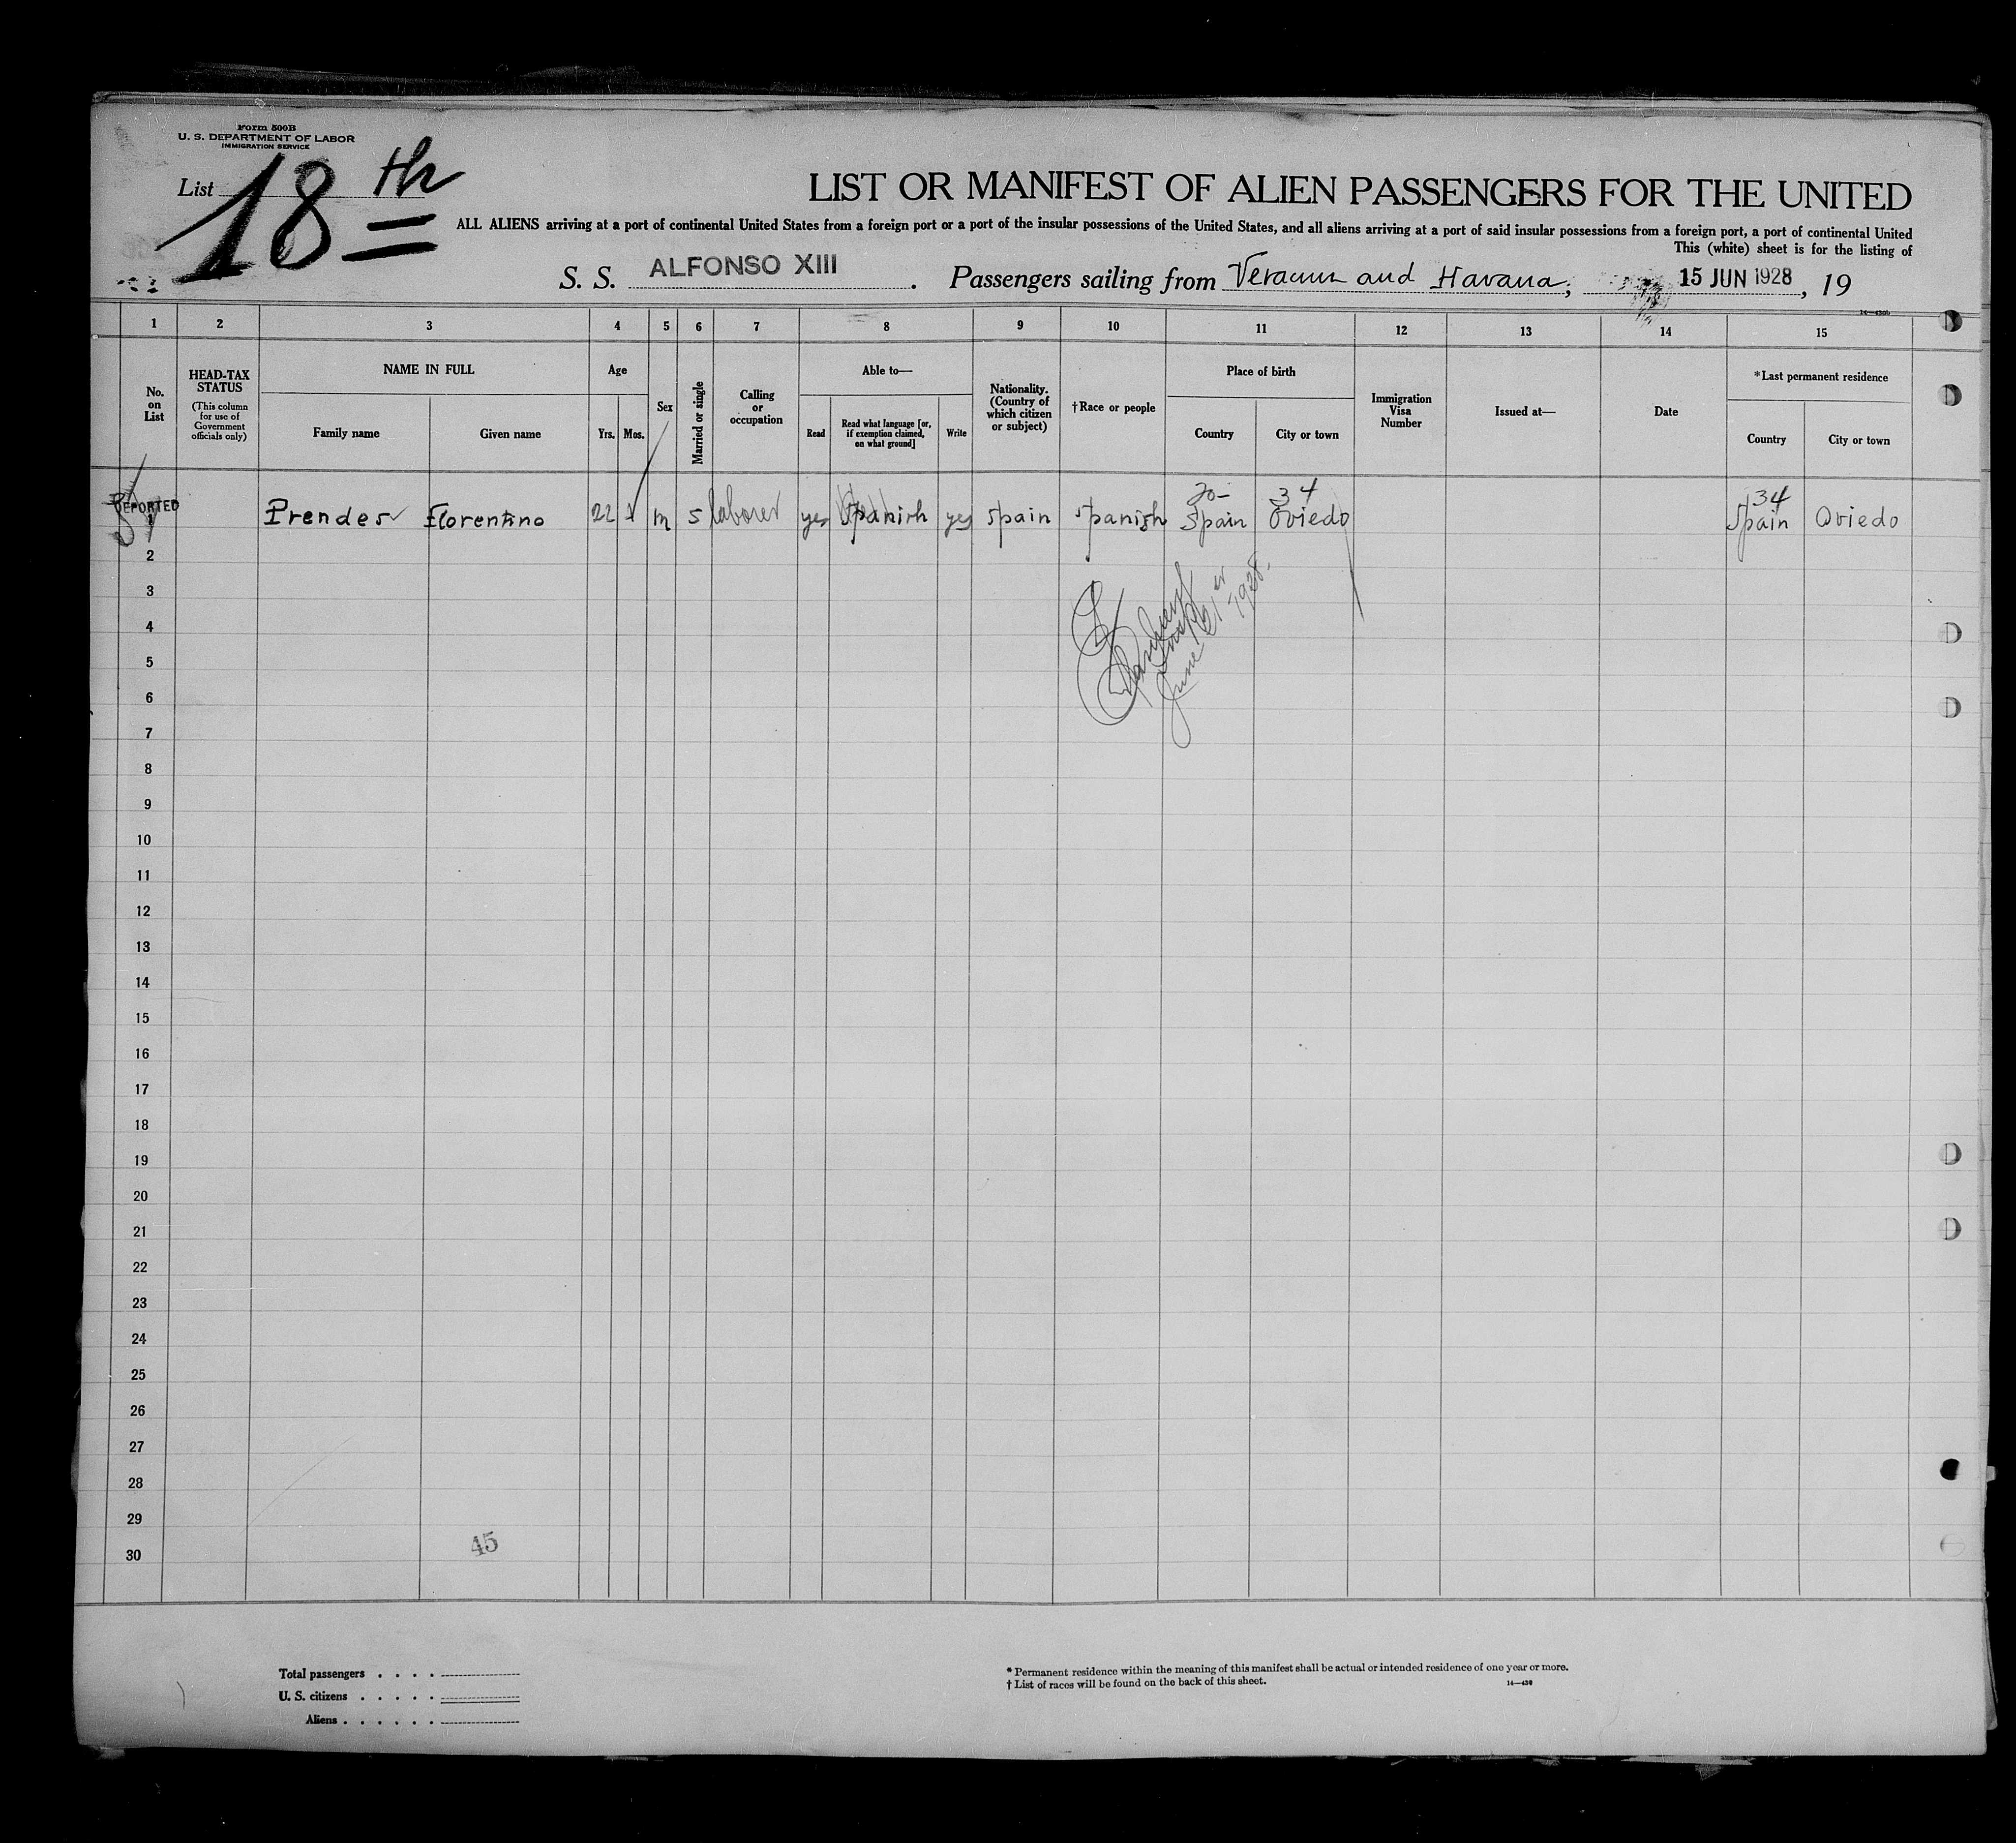 Form 500B
U. S. DEPARTMENT OF LABOR
IMMIGRATION SERVICE
List 18th
LIST OR MANIFEST OF ALIEN PASSENGERS FOR THE UNITED
ALL ALIENS arriving at a port of continental United States from a foreign port or a port of the insular possessions of the United States, and all aliens arriving at a port of said insular possessions from a foreign port, a port of continental United
This (white) sheet is for the listing of
S. S. ALFONSO XIII . Passengers sailing from Veracruz and Havana, 15 JUN 1928, 19
1 2 3 4 5 6 7 8 9 10 11 12 13 14 15
No. on List
HEAD-TAX STATUS
(This column for use of Government officials only)
NAME IN FULL
Family name
Given name
Age
Yrs.
Mos.
Sex
Married or single
Calling or occupation
Able to—
Read
Read what language [or, if exemption claimed, on what ground]
Write
Nationality. (Country of which citizen or subject)
†Race or people
Place of birth
Country
City or town
Immigration Visa Number
Issued at—
Date
*Last permanent residence
Country
City or town
34
34
DEPORTED
1 Prendes Florentino 22 m s laborer yes Spanish yes Spain Spanish Spain Oviedo Spain Oviedo
2
3
4
June 21 1928.
5
6
7
8
9
10
11
12
13
14
15
16
17
18
19
20
21
22
23
24
25
26
27
28
29
45
30
Total passengers . . . .
U. S. citizens . . . . .
Aliens . . . . . .
* Permanent residence within the meaning of this manifest shall be actual or intended residence of one year or more.
† List of races will be found on the back of this sheet.